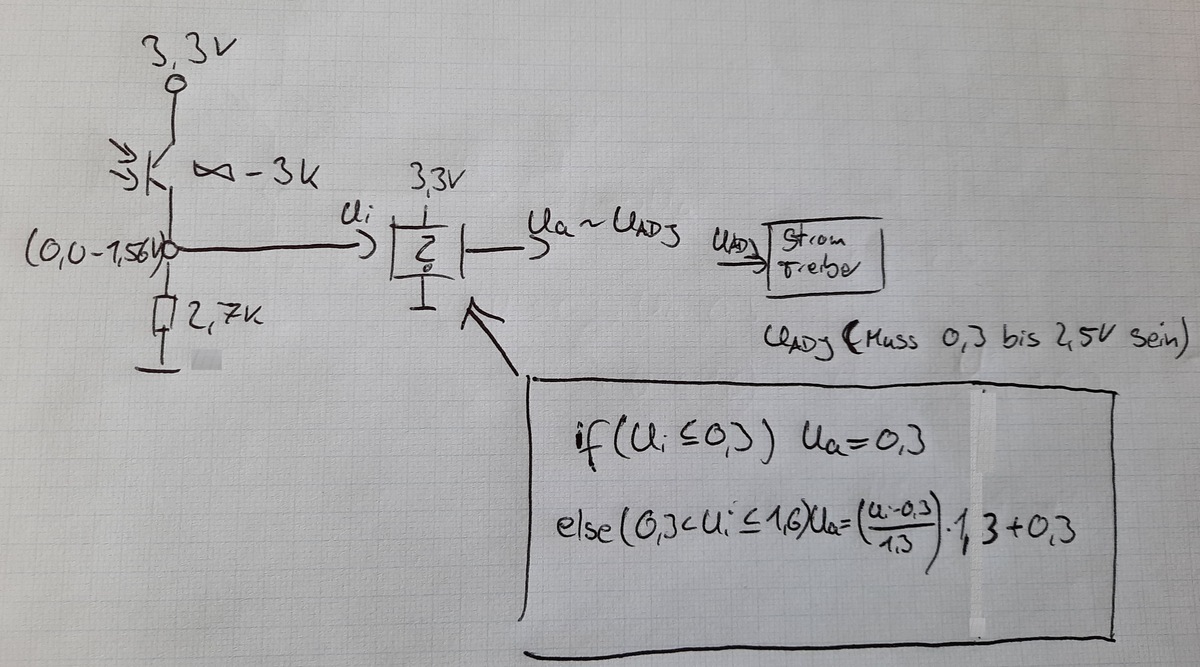 3,3V
∞ - 3K
3,3V
Ui
?
Ua ~ UADJ
(0,0-1,56V)
UADJ
Strom
Treiber
2,7K
UADJ (Muss 0,3 bis 2,5V sein)
if (Ui ≤ 0,3) Ua = 0,3
else (0,3 < Ui ≤ 1,6) Ua = (Ui-0,3 / 1,3) · 1,3 + 0,3